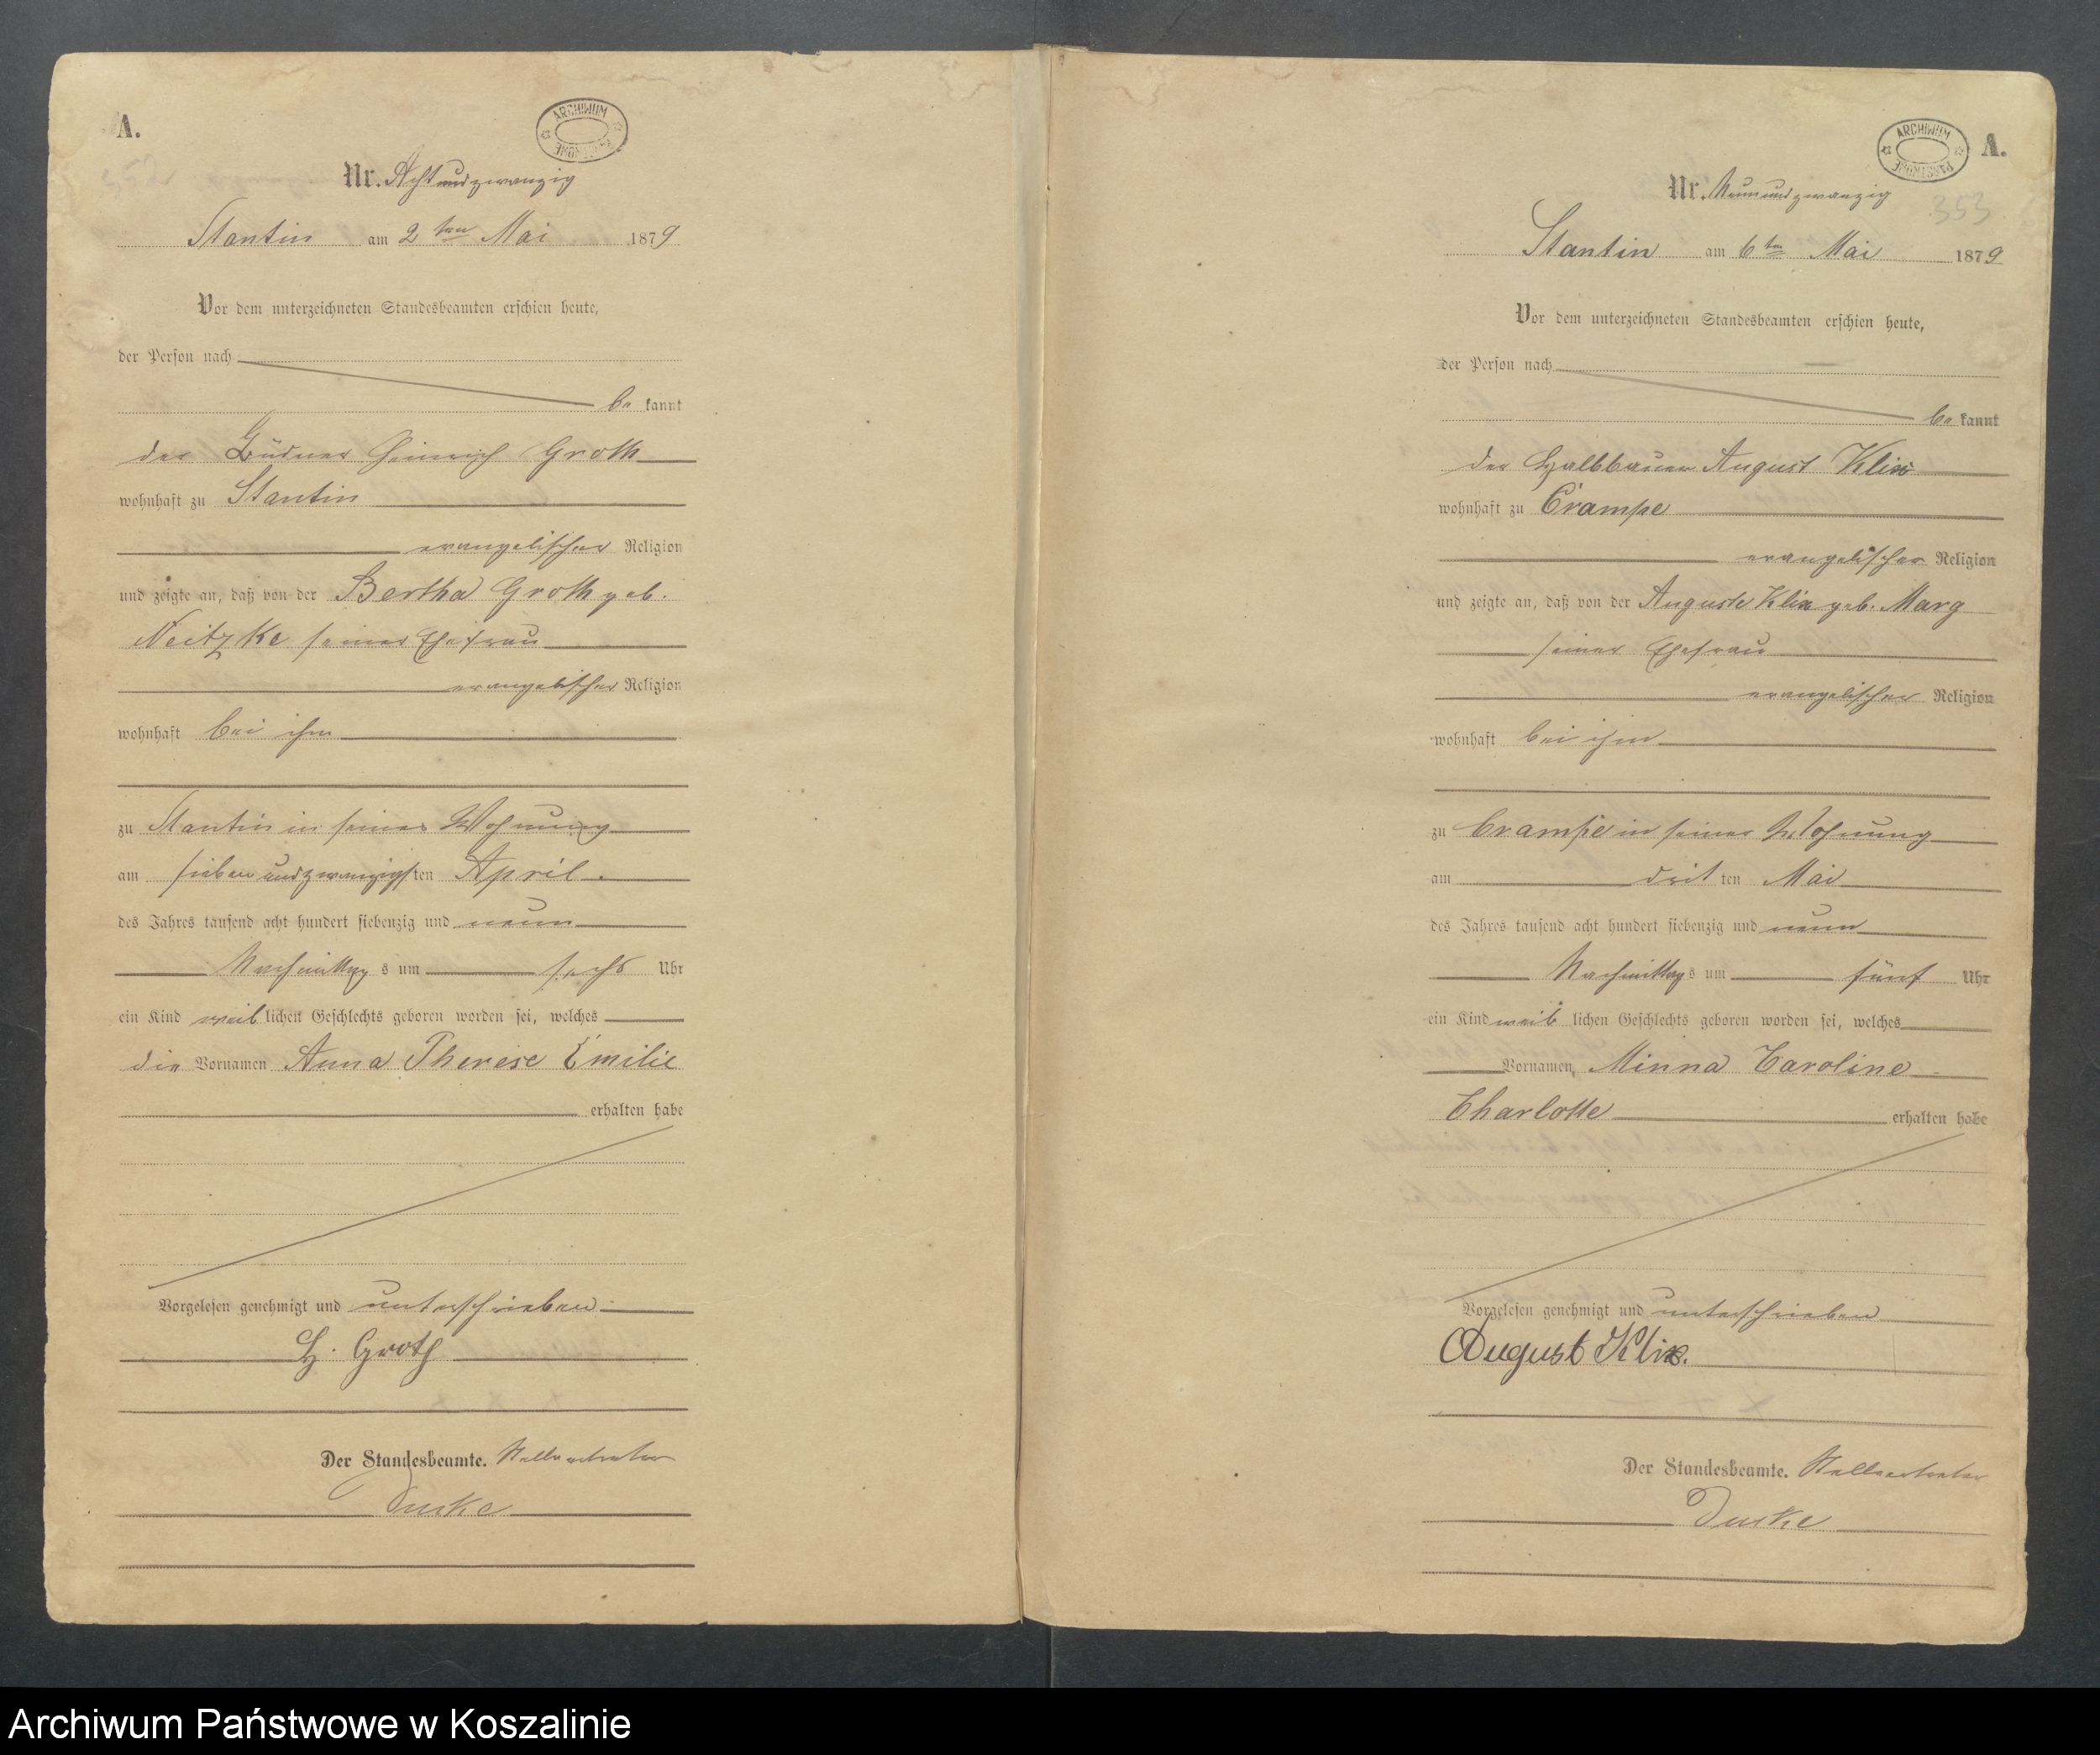 A.
ARCHIWUM PAŃSTWOWE
Nr. Achtundzwanzig
Stantin am 2ten Mai 1879
Vor dem unterzeichneten Standesbeamten erschien heute,
der Person nach
be kannt
der Büdner Heinrich Groth
wohnhaft zu Stantin
evangelischer Religion
und zeigte an, daß von der Bertha Groth geb.
Neitzke seiner Ehefrau
evangelischer Religion
wohnhaft bei ihm
zu Stantin in seiner Wohnung
am siebenundzwanzigsten April
des Jahres tausend acht hundert siebenzig und neun
Nachmittags um sechs Uhr
ein Kind weiblichen Geschlechts geboren worden sei, welches
die Vornamen Anna Therese Emilie
erhalten habe
Vorgelesen genehmigt und unterschrieben
H. Groth
Der Standesbeamte. Stellvertreter
A.
ARCHIWUM PAŃSTWOWE
353
Nr. Neunundzwanzig
Stantin am 6ten Mai 1879
Vor dem unterzeichneten Standesbeamten erschien heute,
der Person nach
be kannt
der Halbbauer August Klix
wohnhaft zu Crampe
evangelischer Religion
und zeigte an, daß von der Auguste Klix geb. Marg
seiner Ehefrau
evangelischer Religion
wohnhaft bei ihm
zu Crampe in seiner Wohnung
am dritten Mai
des Jahres tausend acht hundert siebenzig und neun
Nachmittags um fünf Uhr
ein Kind weiblichen Geschlechts geboren worden sei, welches
Vornamen Minna Caroline
Charlotte erhalten habe
Vorgelesen genehmigt und unterschrieben
August Klix.
Der Standesbeamte. Stellvertreter
Archiwum Państwowe w Koszalinie